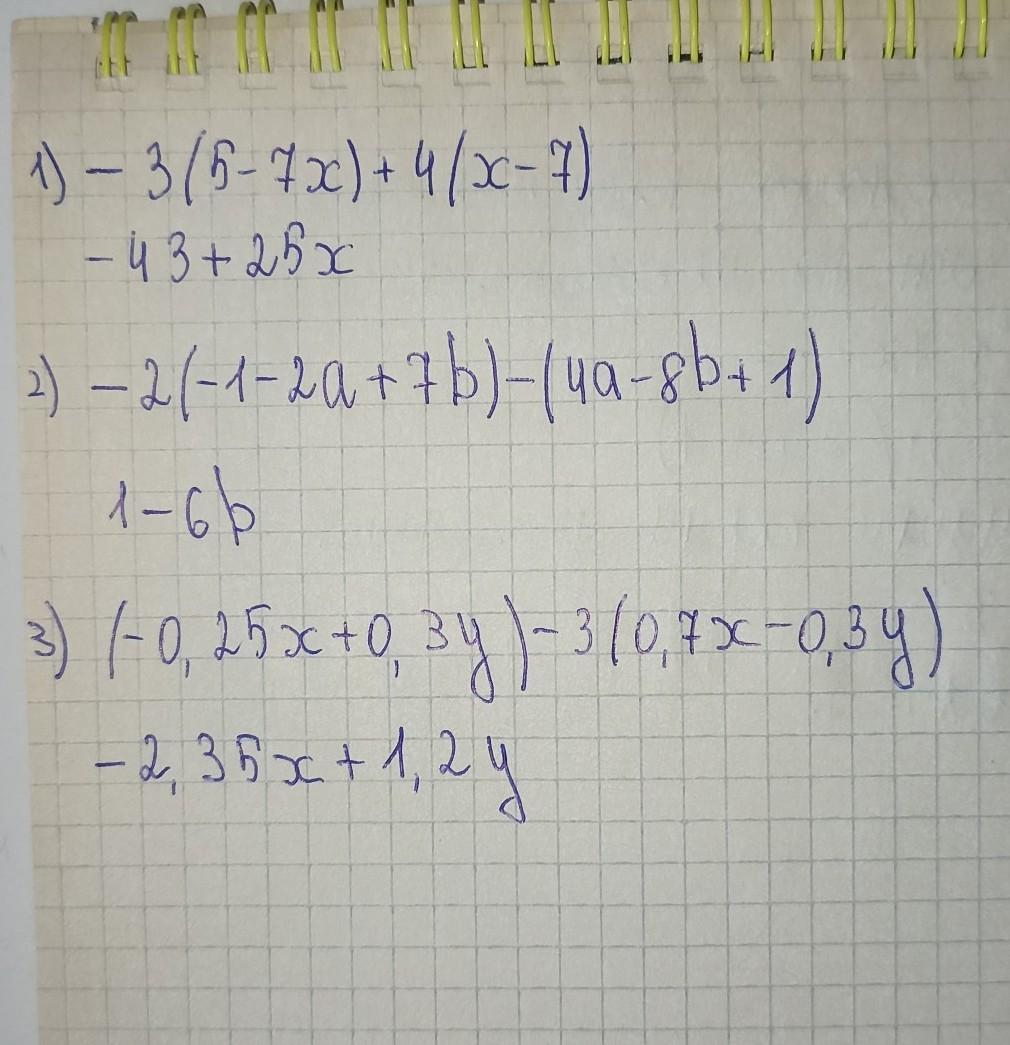 1) - 3(5-7x)+4(x-7)
-43+25x
2) -2(-1-2a+7b)-(4a-8b+1)
1-6b
3) (-0,25x+0,3y)-3(0,7x-0,3y)
-2,35x+1,2y